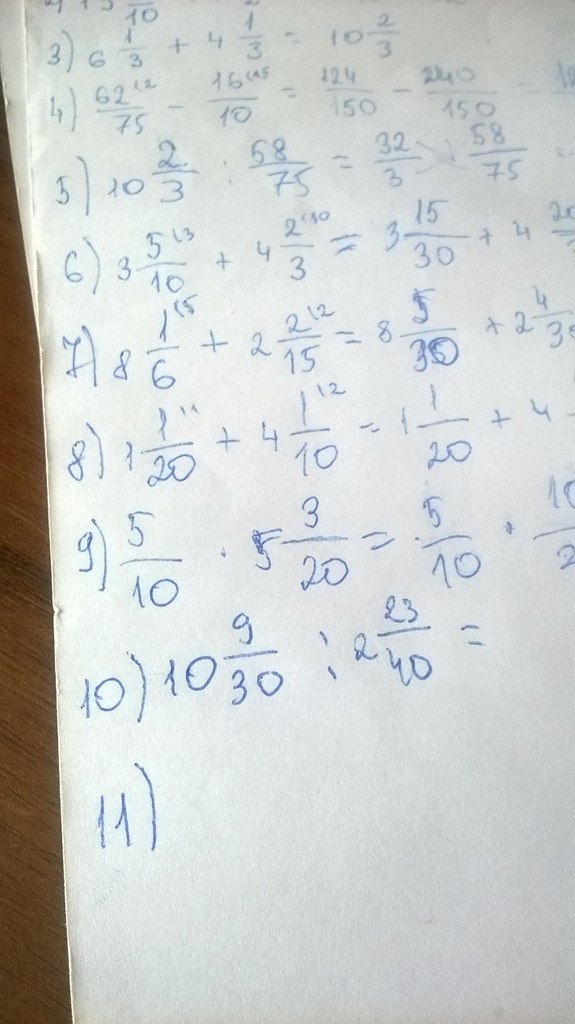 3) 6 1/3 + 4 1/3 = 10 2/3
4) 62/75 - 16/10 = 124/150 - 240/150 -
5) 10 2/3 : 58/75 = 32/3 : 58/75 =
6) 3 5/10 + 4 2/3 = 3 15/30 + 4
7) 8 1/6 + 2 2/15 = 8 5/30 + 2 4/30
8) 1 1/20 + 4 1/10 = 1 1/20 + 4
9) 5/10 · 5 3/20 = 5/10 ·
10) 10 9/30 : 2 23/40 =
11)